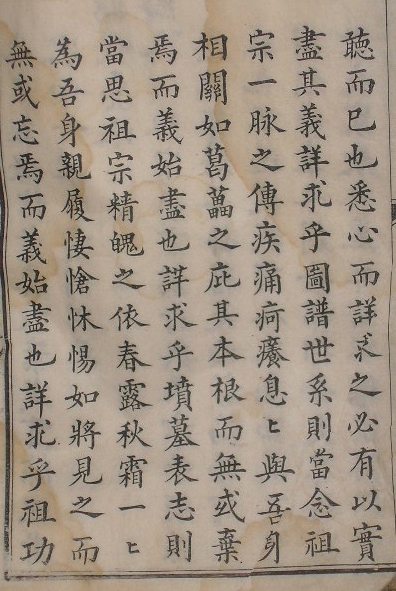 聽而已也悉心而詳求之必有以實
盡其義詳求乎圖譜世系則當念祖
宗一脉之傳疾痛疴癢息〻與吾身
相關如葛藟之庇其本根而無或棄
焉而義始盡也詳求乎墳墓表志則
當思祖宗精魄之依春露秋霜一〻
為吾身親履悽愴怵惕如將見之而
無或忘焉而義始盡也詳求乎祖功